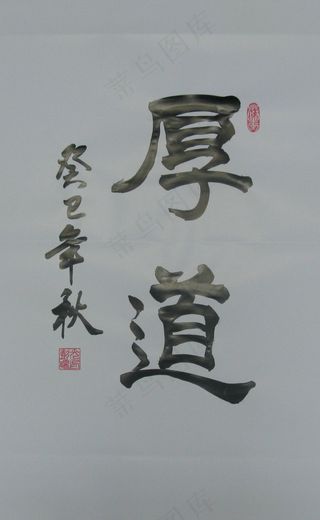 厚道
癸巳年秋
菜鸟图库